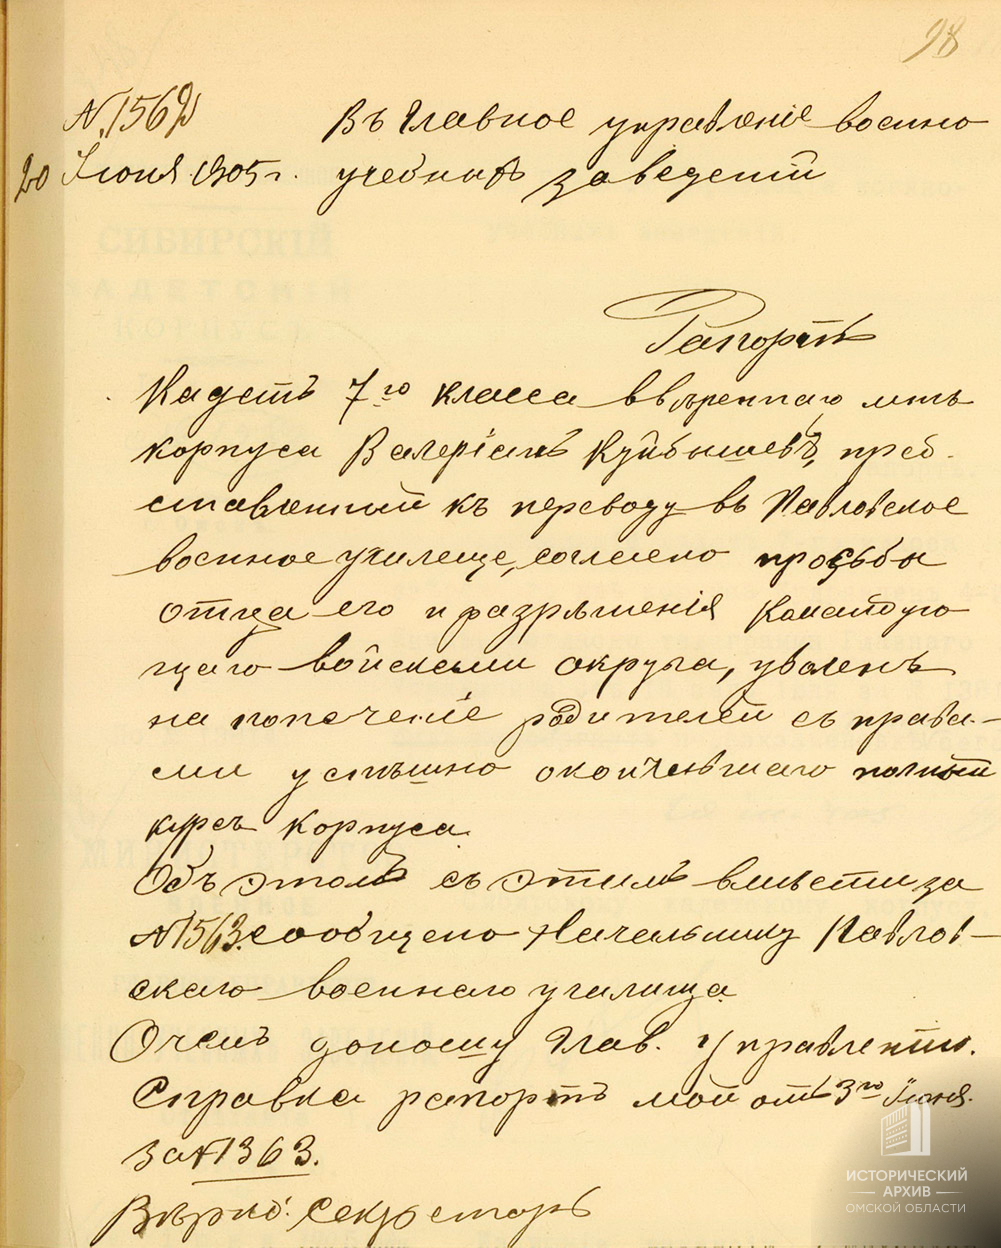 98
№ 1562
20 Іюня 1905 г.
Въ Главное управленіе военно
учебныхъ заведеній
Рапортъ
Кадетъ 7го класса ввѣреннаго мнѣ
корпуса Валеріанъ Куйбышевъ, пред-
ставленный къ переводу въ Павловское
военное училеще, согласно просьбы
отца его и разрѣшенія Командую
щаго войсками округа, уволенъ
на попеченіе родителей съ права-
ми успѣшно окончившаго полный
курсъ корпуса.
Объ этомъ съ этимъ вмѣсти за
№ 1563. сообщено Начальнику Павлов-
скаго военнаго училища
О чемъ доношу Глав. Управленію.
Справка рапортъ мой отъ 3го Іюня.
за № 1363.
Вѣрно: Секретарь
СИБИРСКІЙ
КАДЕТСКІЙ
КОРПУСЪ
ИСТОРИЧЕСКИЙ
АРХИВ
ОМСКОЙ ОБЛАСТИ